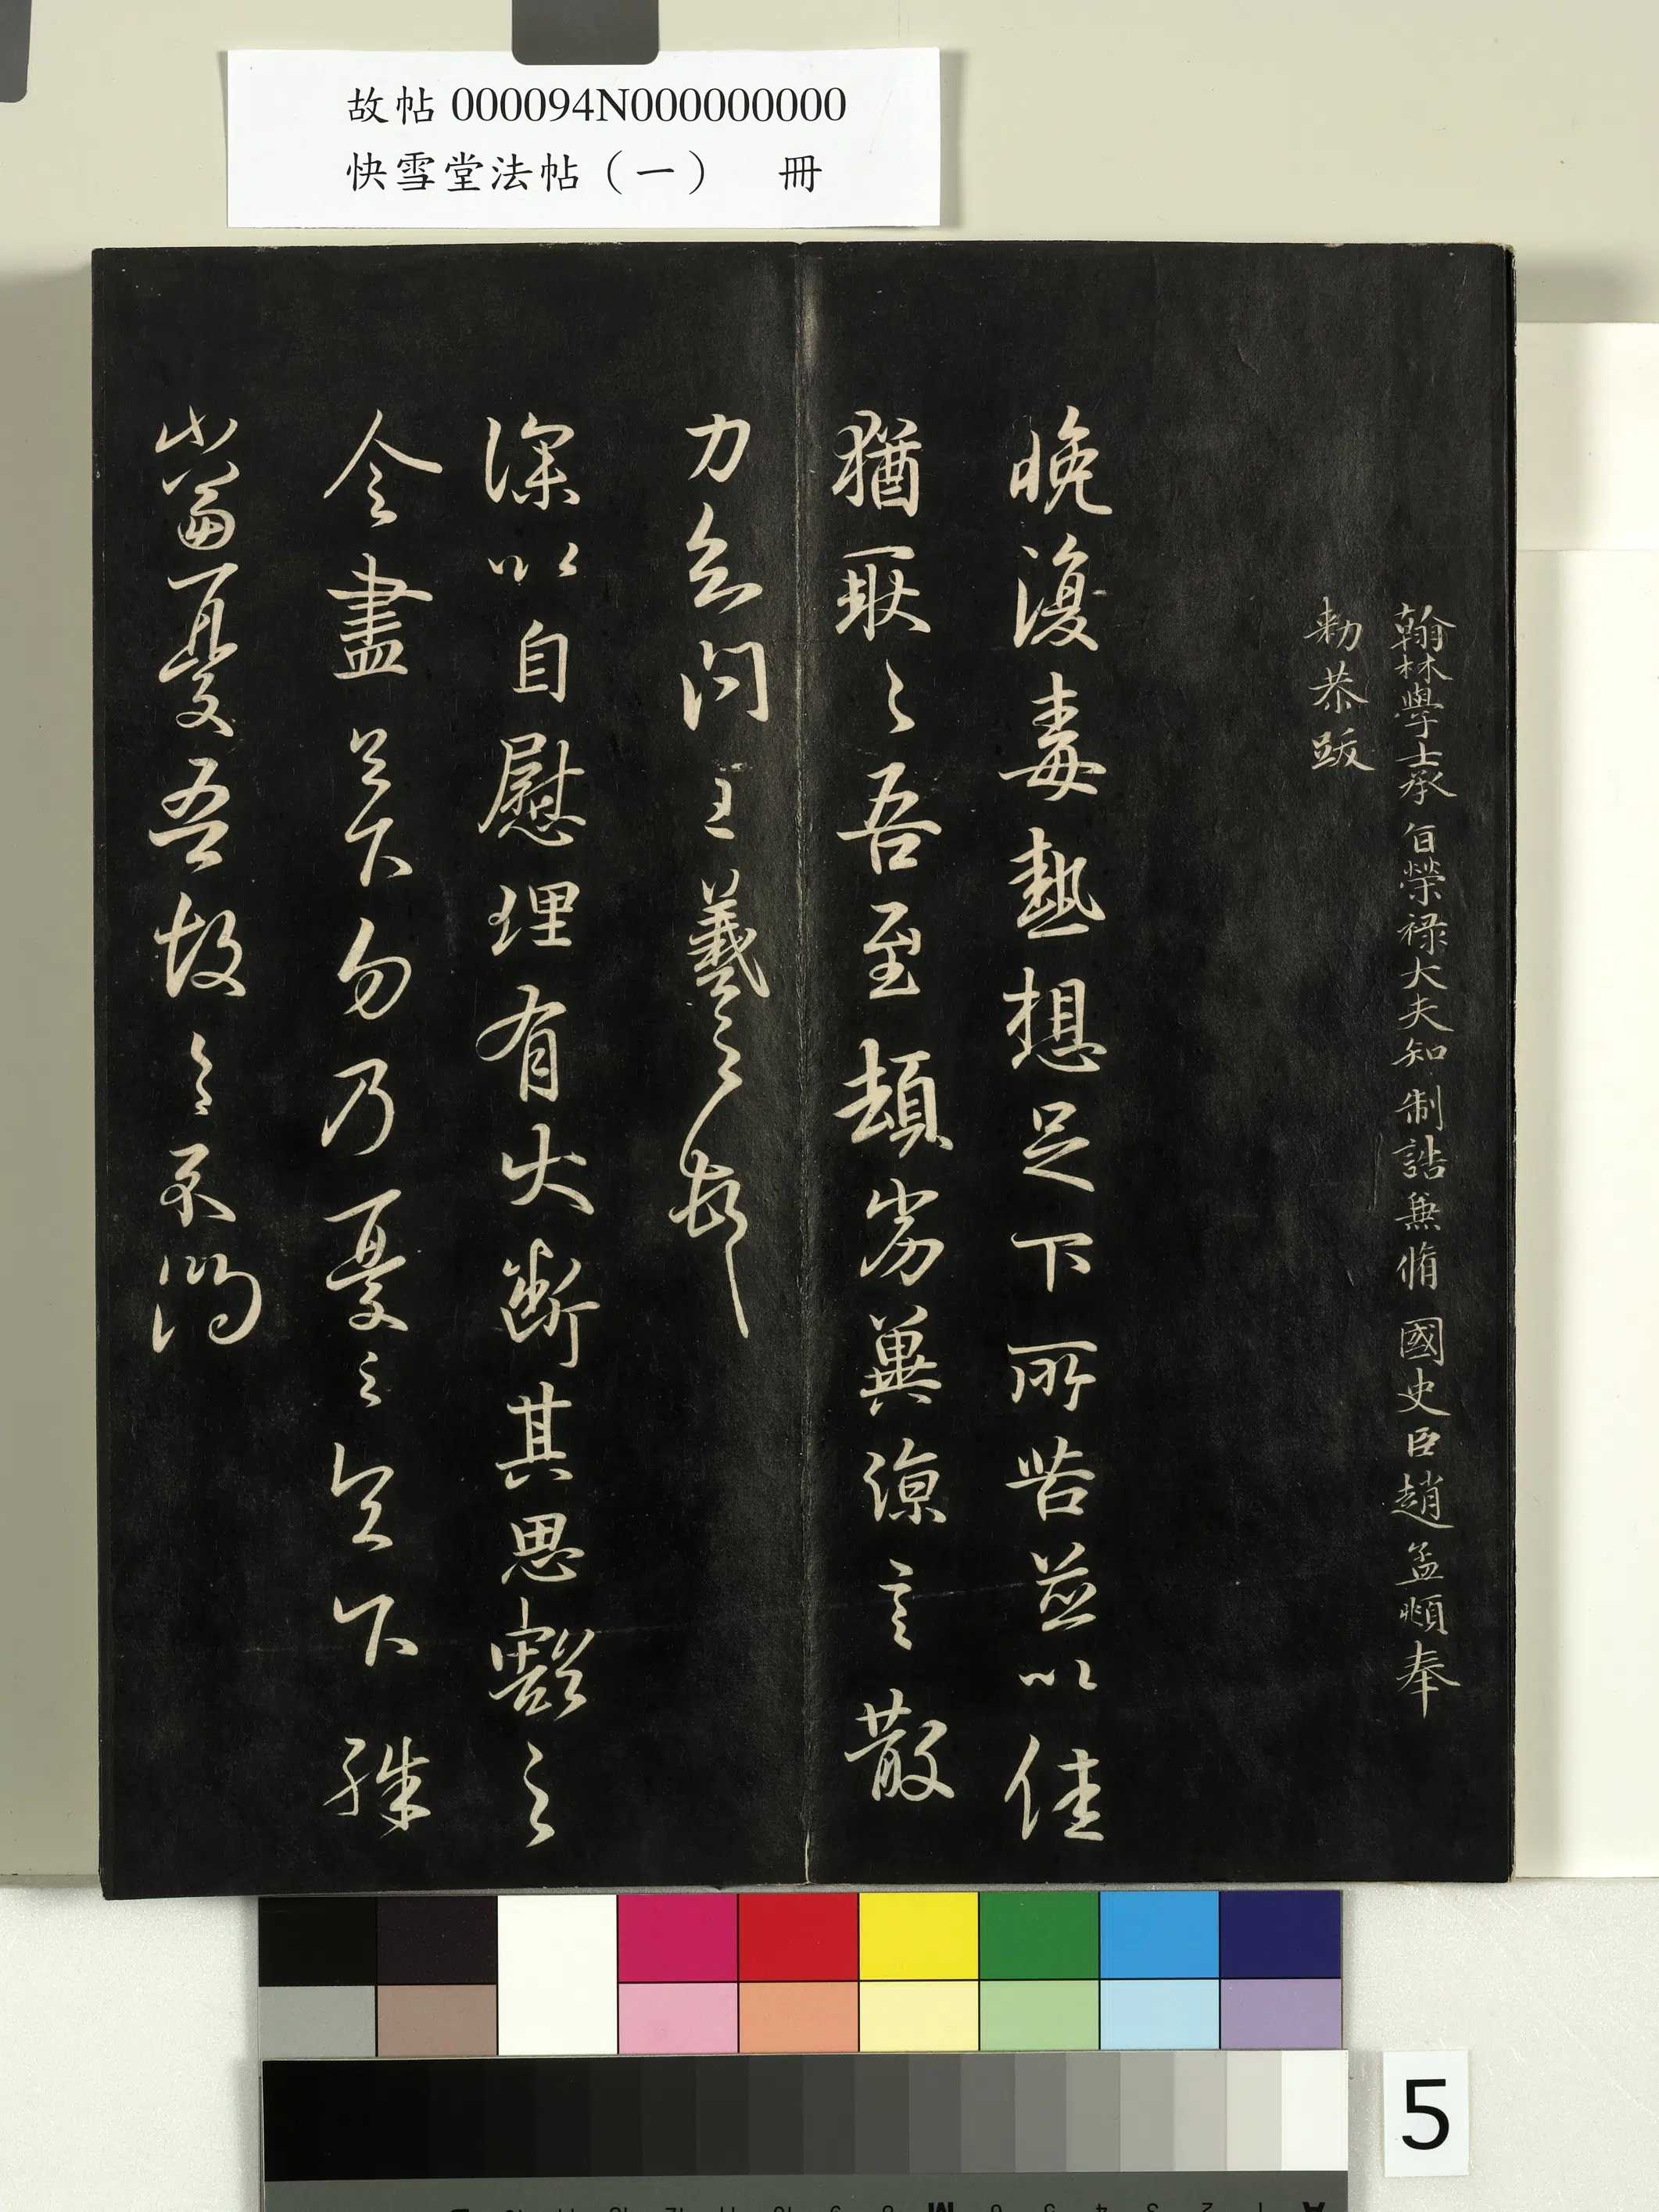 故帖 000094N000000000
快雪堂法帖（一） 冊
翰林學士承旨榮祿大夫知制誥兼脩國史臣趙孟頫奉
勑恭跋
晚復毒熱想足下所苦並以佳
猶耿〻吾至頓劣冀涼言散
力知問王羲之頓首
深以自慰理有大斷其思豁之
令盡足下勿乃憂之足下殊
不當憂吾故具示問
5